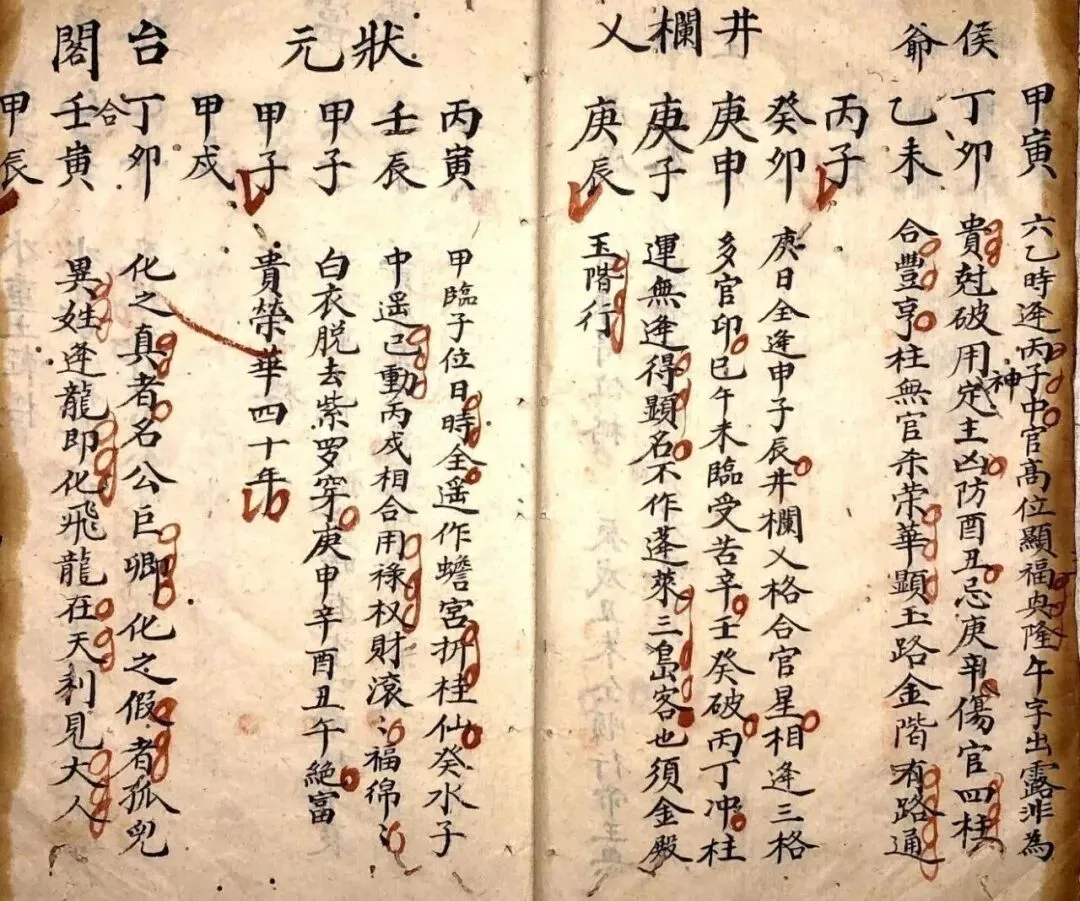 侯爺
甲寅 六乙時逢丙子中官高位顯福興隆午字出露非為
丁卯 貴尅破用神定主凶防酉丑忌庚辛傷官四柱
乙未 合豐亨柱無官杀荣華顯玉路金階有路通
丙子
井欄乂
癸卯 庚日全逢申子辰井欄乂格合官星相逢三格
庚申 多官印巳午未臨受苦辛壬癸破丙丁冲柱
庚子 運無逢得顯名不作蓬萊三島客也須金殿
庚辰 玉階行
狀元
丙寅 甲臨子位日時全遥作蟾宮折桂仙癸水子
壬辰 中遥巳動丙戌相合用祿权財滚〻福绵〻
甲子 白衣脱去紫罗穿庚申辛酉丑午絶富
甲子 貴榮華四十年
甲戌
台閣
丁卯 化之真者名公巨卿化之假者孤兒
合
壬寅 異姓逢龍即化飛龍在天利見大人
甲辰